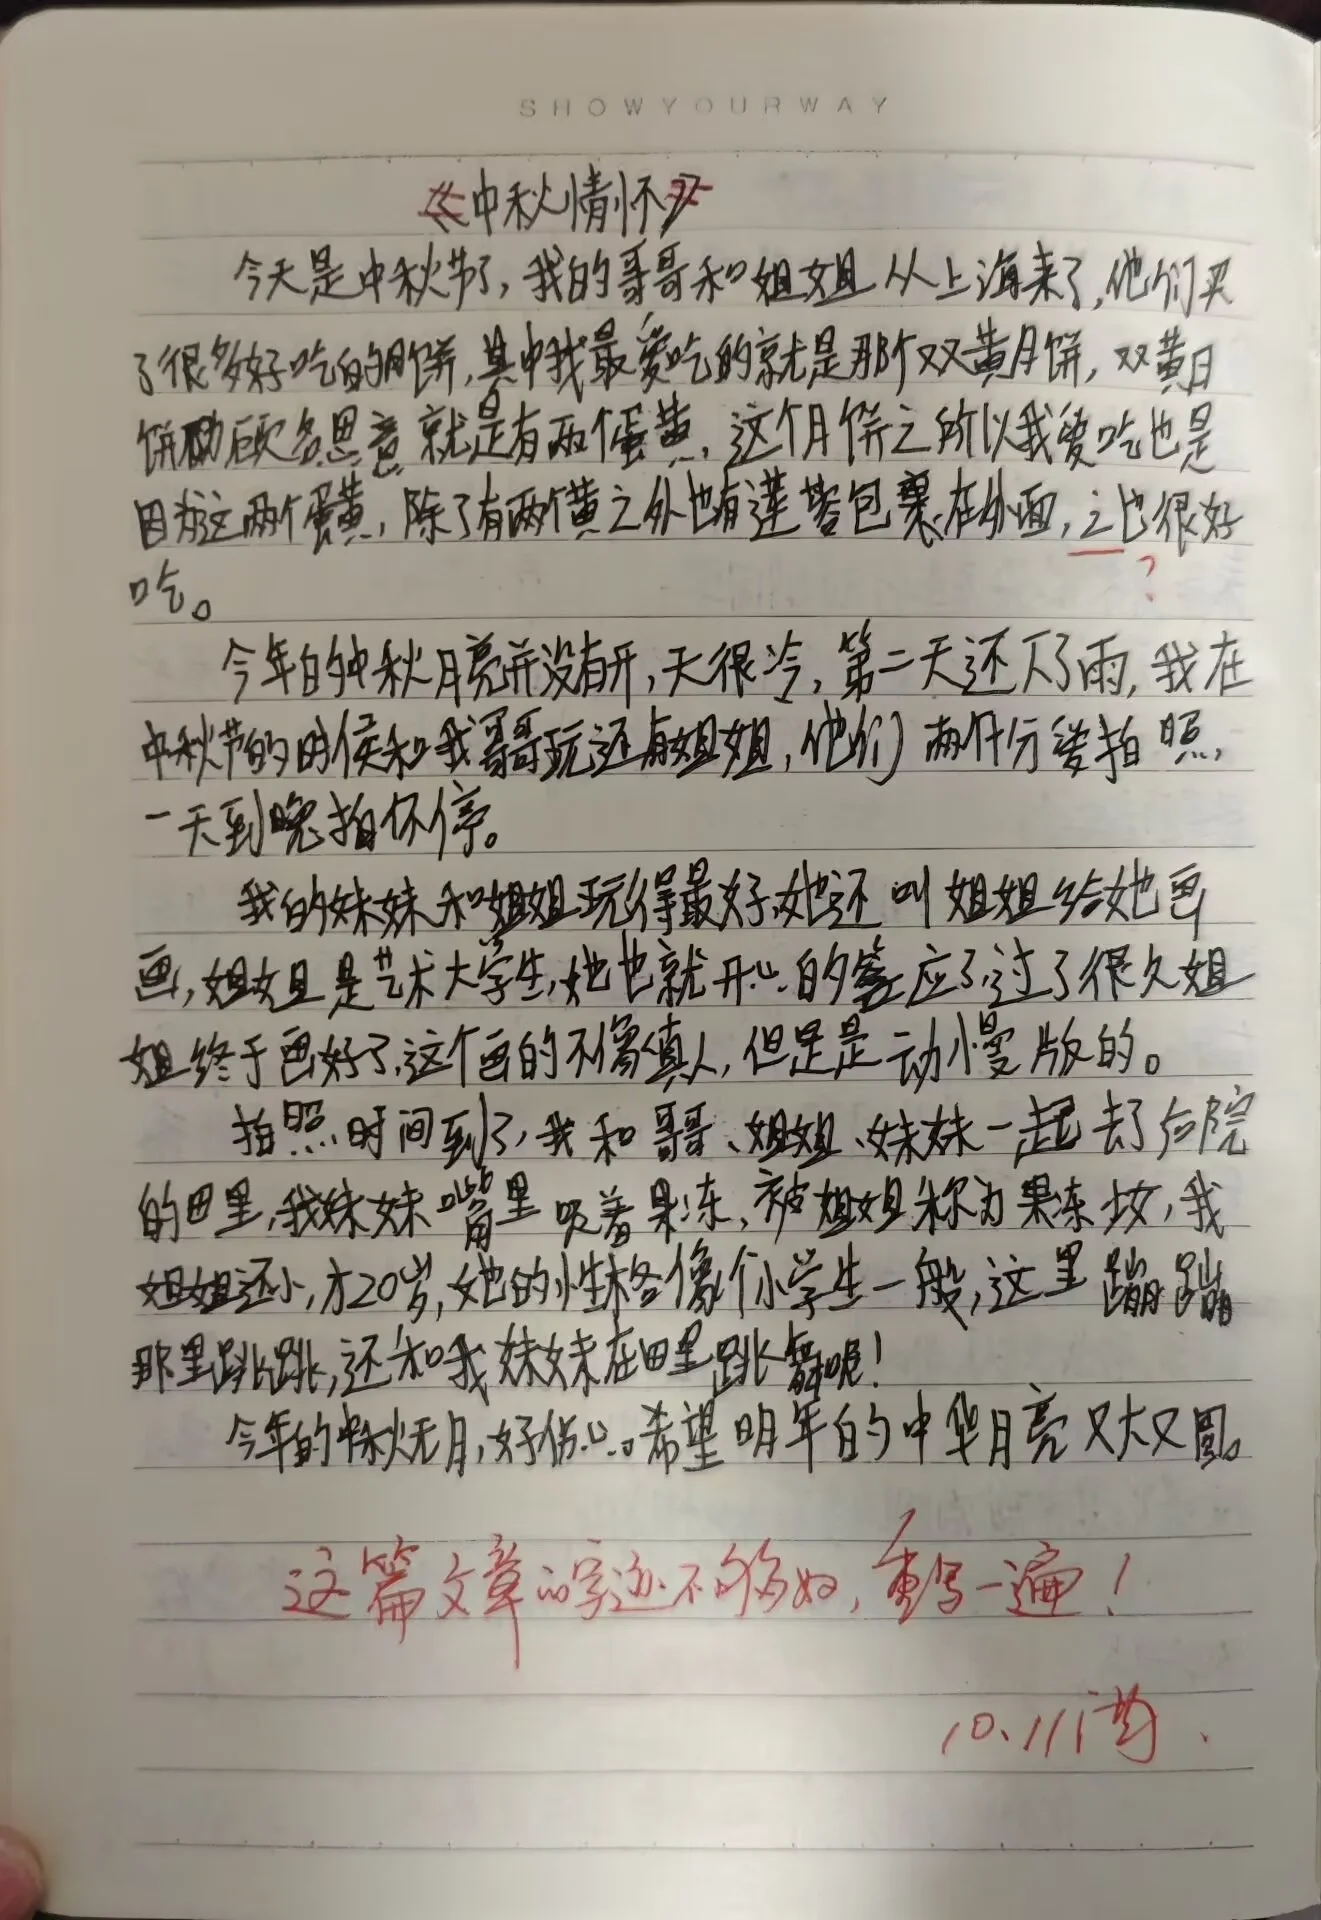 SHOWYOURWAY
《中秋情怀》
今天是中秋节了,我的哥哥和姐姐从上海来了,他们买
了很多好吃的月饼,其中我最爱吃的就是那个双黄月饼,双黄月
饼顾名思意就是有两个蛋黄,这个月饼之所以我爱吃也是
因为这两个蛋黄,除了有两个黄之外也有莲蓉包裹在外面,之也很好
?
吃。
今年的中秋月亮并没有开,天很冷,第二天还下了雨,我在
中秋节的时候和我哥哥玩还有姐姐,他们两个十分爱拍照,
一天到晚拍个不停。
我的妹妹和姐姐玩得最好,她还叫姐姐给她画
画,姐姐是艺术大学生,她也就开心的答应了,过了很久姐
姐终于画好了,这个画的不像真人,但是是动慢版的。
拍照时间到了,我和哥哥、姐姐、妹妹一起去了后院
的田里,我妹妹嘴里吸着果冻,被姐姐称为果冻妆,我
姐姐还小,才20岁,她的性格像个小学生一般,这里蹦蹦
那里跳跳,还和我妹妹在田里跳舞呢!
今年的中秋无月,好伤心。希望明年的中华月亮又大又圆。
这篇文章的字迹不够好,重写一遍!
10.11